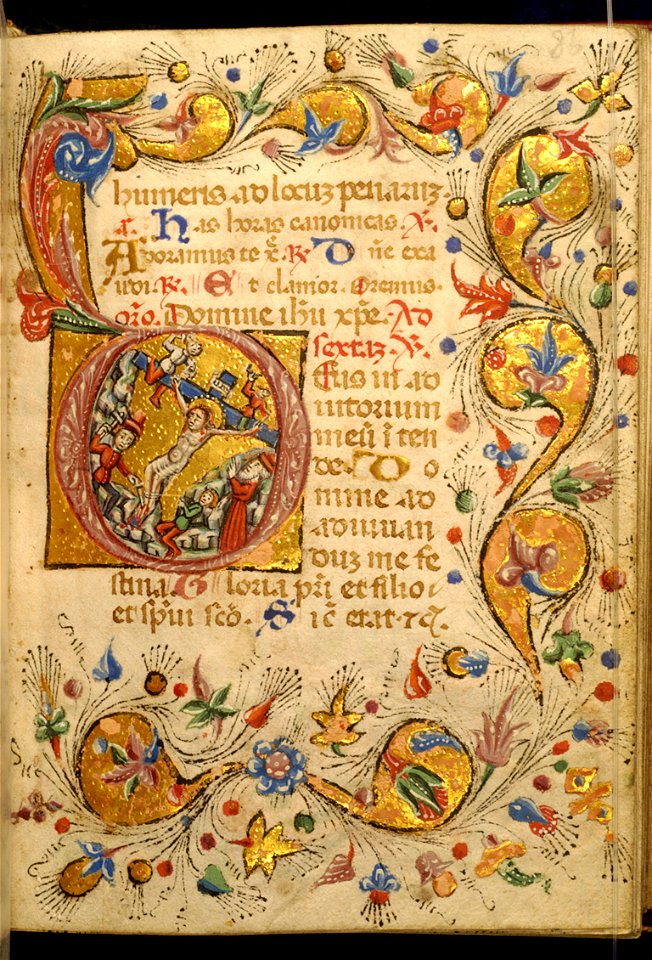 86
humeris ad locuz penaruz.
a. Has horas canonicas. V.
Adoramus te x̄. R. Dn̄e exa
udi. R. Et clamor. Oremus.
oro. Domine ihū xp̄e. Ad
sextaz. V.
Eus in ad
iutorium
meū ī ten
de. Do
mine ad
adiuuan
duz me fe
stina. Gloria pr̄i et filio
et spūi scō. Sic̄ erat ⁊c̄.